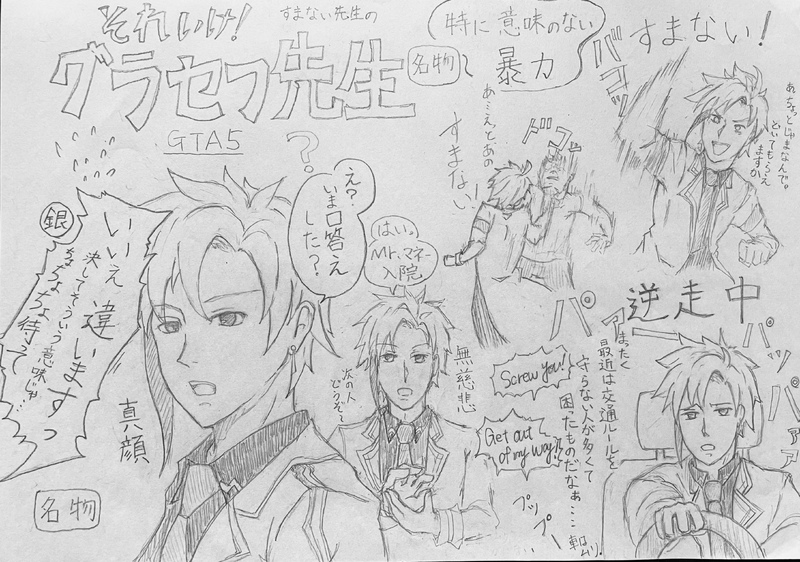 それいけ!
すまない先生の
グラセフ先生
GTA5
名物
特に意味のない
暴力
すまない!
バコッ
あ、ちょっとじゃまなんで。
どいてもらえ
ますか
あ…えとあの
すまない!
ドゴッ
?
え?
いま口答え
した?
はい。
Mr.マネー
入院
銀
いいえ違いますっ
決してそういう意味じゃ…
ちょちょちょ待って
真顔
名物
次の人
どうぞ〜
無慈悲
逆走中
パパッパァァ
まったく
最近は交通ルールを
守らない人が多くて
困たものだなぁ…
Screw you!
Get out
of my way!!
プップー